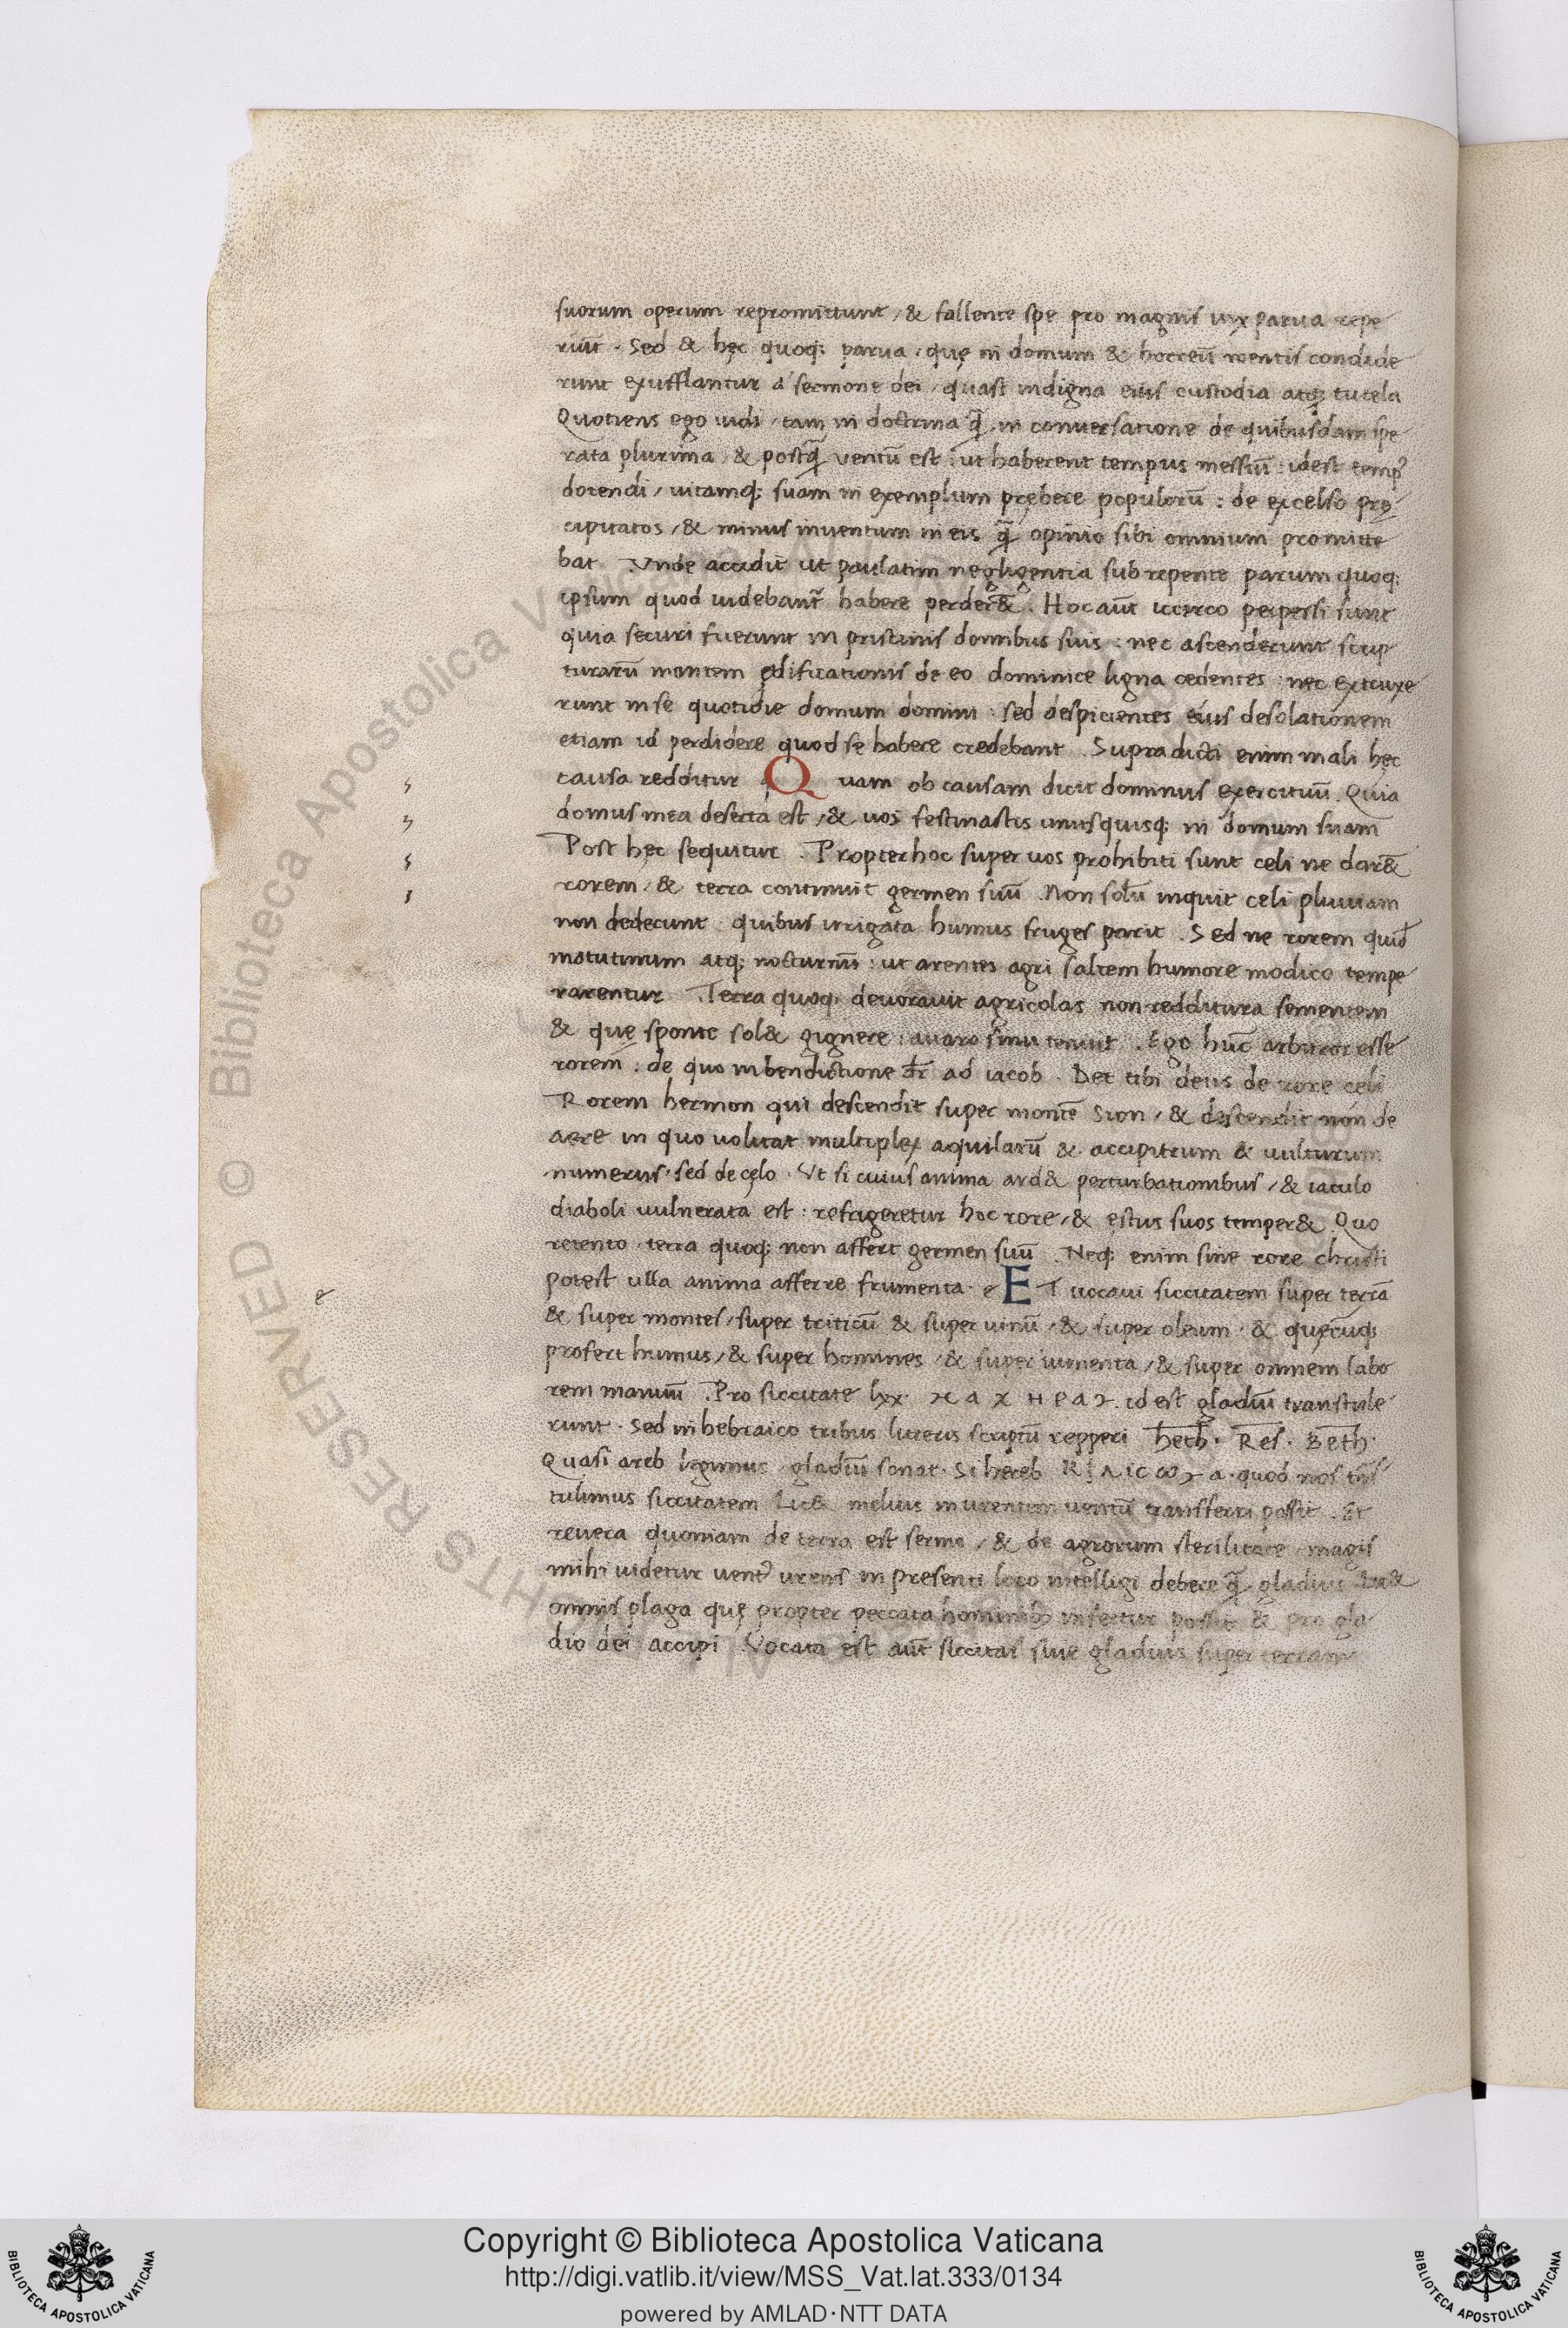 suorum operum repromittunt, & fallente spe pro magnis vix parua repe
riūt. Sed & hęc quoq; parua, quę in domum & horreū mentis condide
runt exufflantur a sermone dei, quasi indigna eius custodia atq; tutela
Quotiens ego uidi, tam in doctrina q̄ in conuersatione de quibusdam spe
rata plurima, & postq̄ ventū est: ut haberent tempus messiū: idest temp9
docendi, uitamq; suam in exemplum prębere populorū: de excelso prę
cipitatos, & minus inuentum in eis q̄ opinio sibi omnium promitte
bat. Vnde accidit ut paulatim negligentia subrepente parum quoq;
ipsum quod uidebant̄ habere perder&. Hoc aūt iccirco perpessi sunt
quia securi fuerunt in pristinis domibus suis: nec ascenderunt scrip
turarū montem ędificationis de eo dominice ligna cedentes: nec extruxe
runt in se quotidie domum domini: sed despicientes eius desolationem
etiam id perdidere quod se habere credebant. Supradicti enim mali hęc
causa redditur q Quam ob causam dicit dominus exercituū. Quia
domus mea deserta est, & uos festinastis unusquisq; in domum suam
Post hęc sequitur. Propter hoc super uos prohibiti sunt celi ne dar&
rorem, & terra continuit germen suū. Non solū inquit celi pluuiam
non dederunt quibus irrigata humus fruges parit. Sed ne rorem quid̄
matutinum atq; nocturnū: ut arentes agri saltem humore modico tempe
rarentur. Terra quoq; deuorauit agricolas non redditura sementem
& quę sponte sol& gignere: auaro sinu tenuit. Ego hūc arbitror esse
rorem: de quo in bendictione dr̄ ad iacob. Det tibi deus de rore celi
Rorem hermon qui descendit super montē Sion, & descendit non de
aere in quo uolitat multiplex aquilarū & accipitrum & uulturum
numerus. sed de cęlo. Vt si cuius anima ard& perturbationibus, & iaculo
diaboli uulnerata est: refrigeretur hoc rore, & ęstus suos temper&. Quo
retento terra quoq; non affert germen suū. Neq; enim sine rore christi
potest ulla anima afferre frumenta. e ET uocaui siccitatem super terrā
& super montes, super triticū & super uinū, & super oleum. & quęcūq;
profert humus, & super homines, & super iumenta, & super omnem labo
rem manuū. Pro siccitate lxx. idest gladiū transtule
runt. Sed in hebraico tribus litteris scriptū repperi heth. Res. Beth.
Quasi areb legimus gladiū sonat. Si hereb quod nos trās
tulimus siccitatem lic& melius in urentem uentū transferri possit. Et
reuera quoniam de terra est sermo, & de agrorum sterilitate magis
mihi uidetur uent9 urens in presenti loco intelligi debere q̄ gladius lic&
omnis plaga quę propter peccata hominib; infertur possit & pro gla
dio dei accipi. Vocata est aūt siccitas siue gladius super terram
e
Copyright © Biblioteca Apostolica Vaticana
http://digi.vatlib.it/view/MSS_Vat.lat.333/0134
powered by AMLAD·NTT DATA
BIBLIOTECA APOSTOLICA VATICANA
BIBLIOTECA APOSTOLICA VATICANA